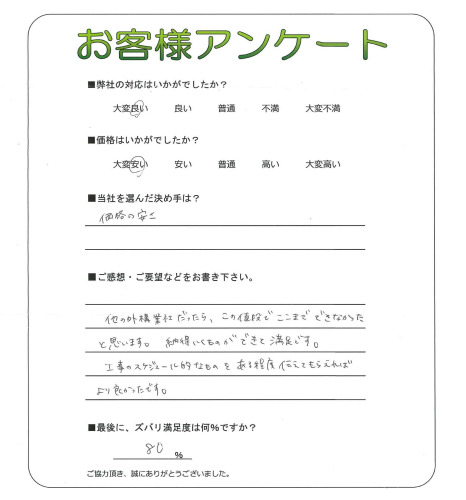 お客様アンケート
■弊社の対応はいかがでしたか？
大変良い 良い 普通 不満 大変不満
■価格はいかがでしたか？
大変安い 安い 普通 高い 大変高い
■当社を選んだ決め手は？
価格の安さ
■ご感想・ご要望などをお書き下さい。
他の外構業社だったら、この値段でここまでできなかった
と思います。 納得いくものができて満足です。
工事のスケジュール的なものをある程度伝えてもらえれば
より良かったです。
■最後に、ズバリ満足度は何%ですか？
80 %
ご協力頂き、誠にありがとうございました。